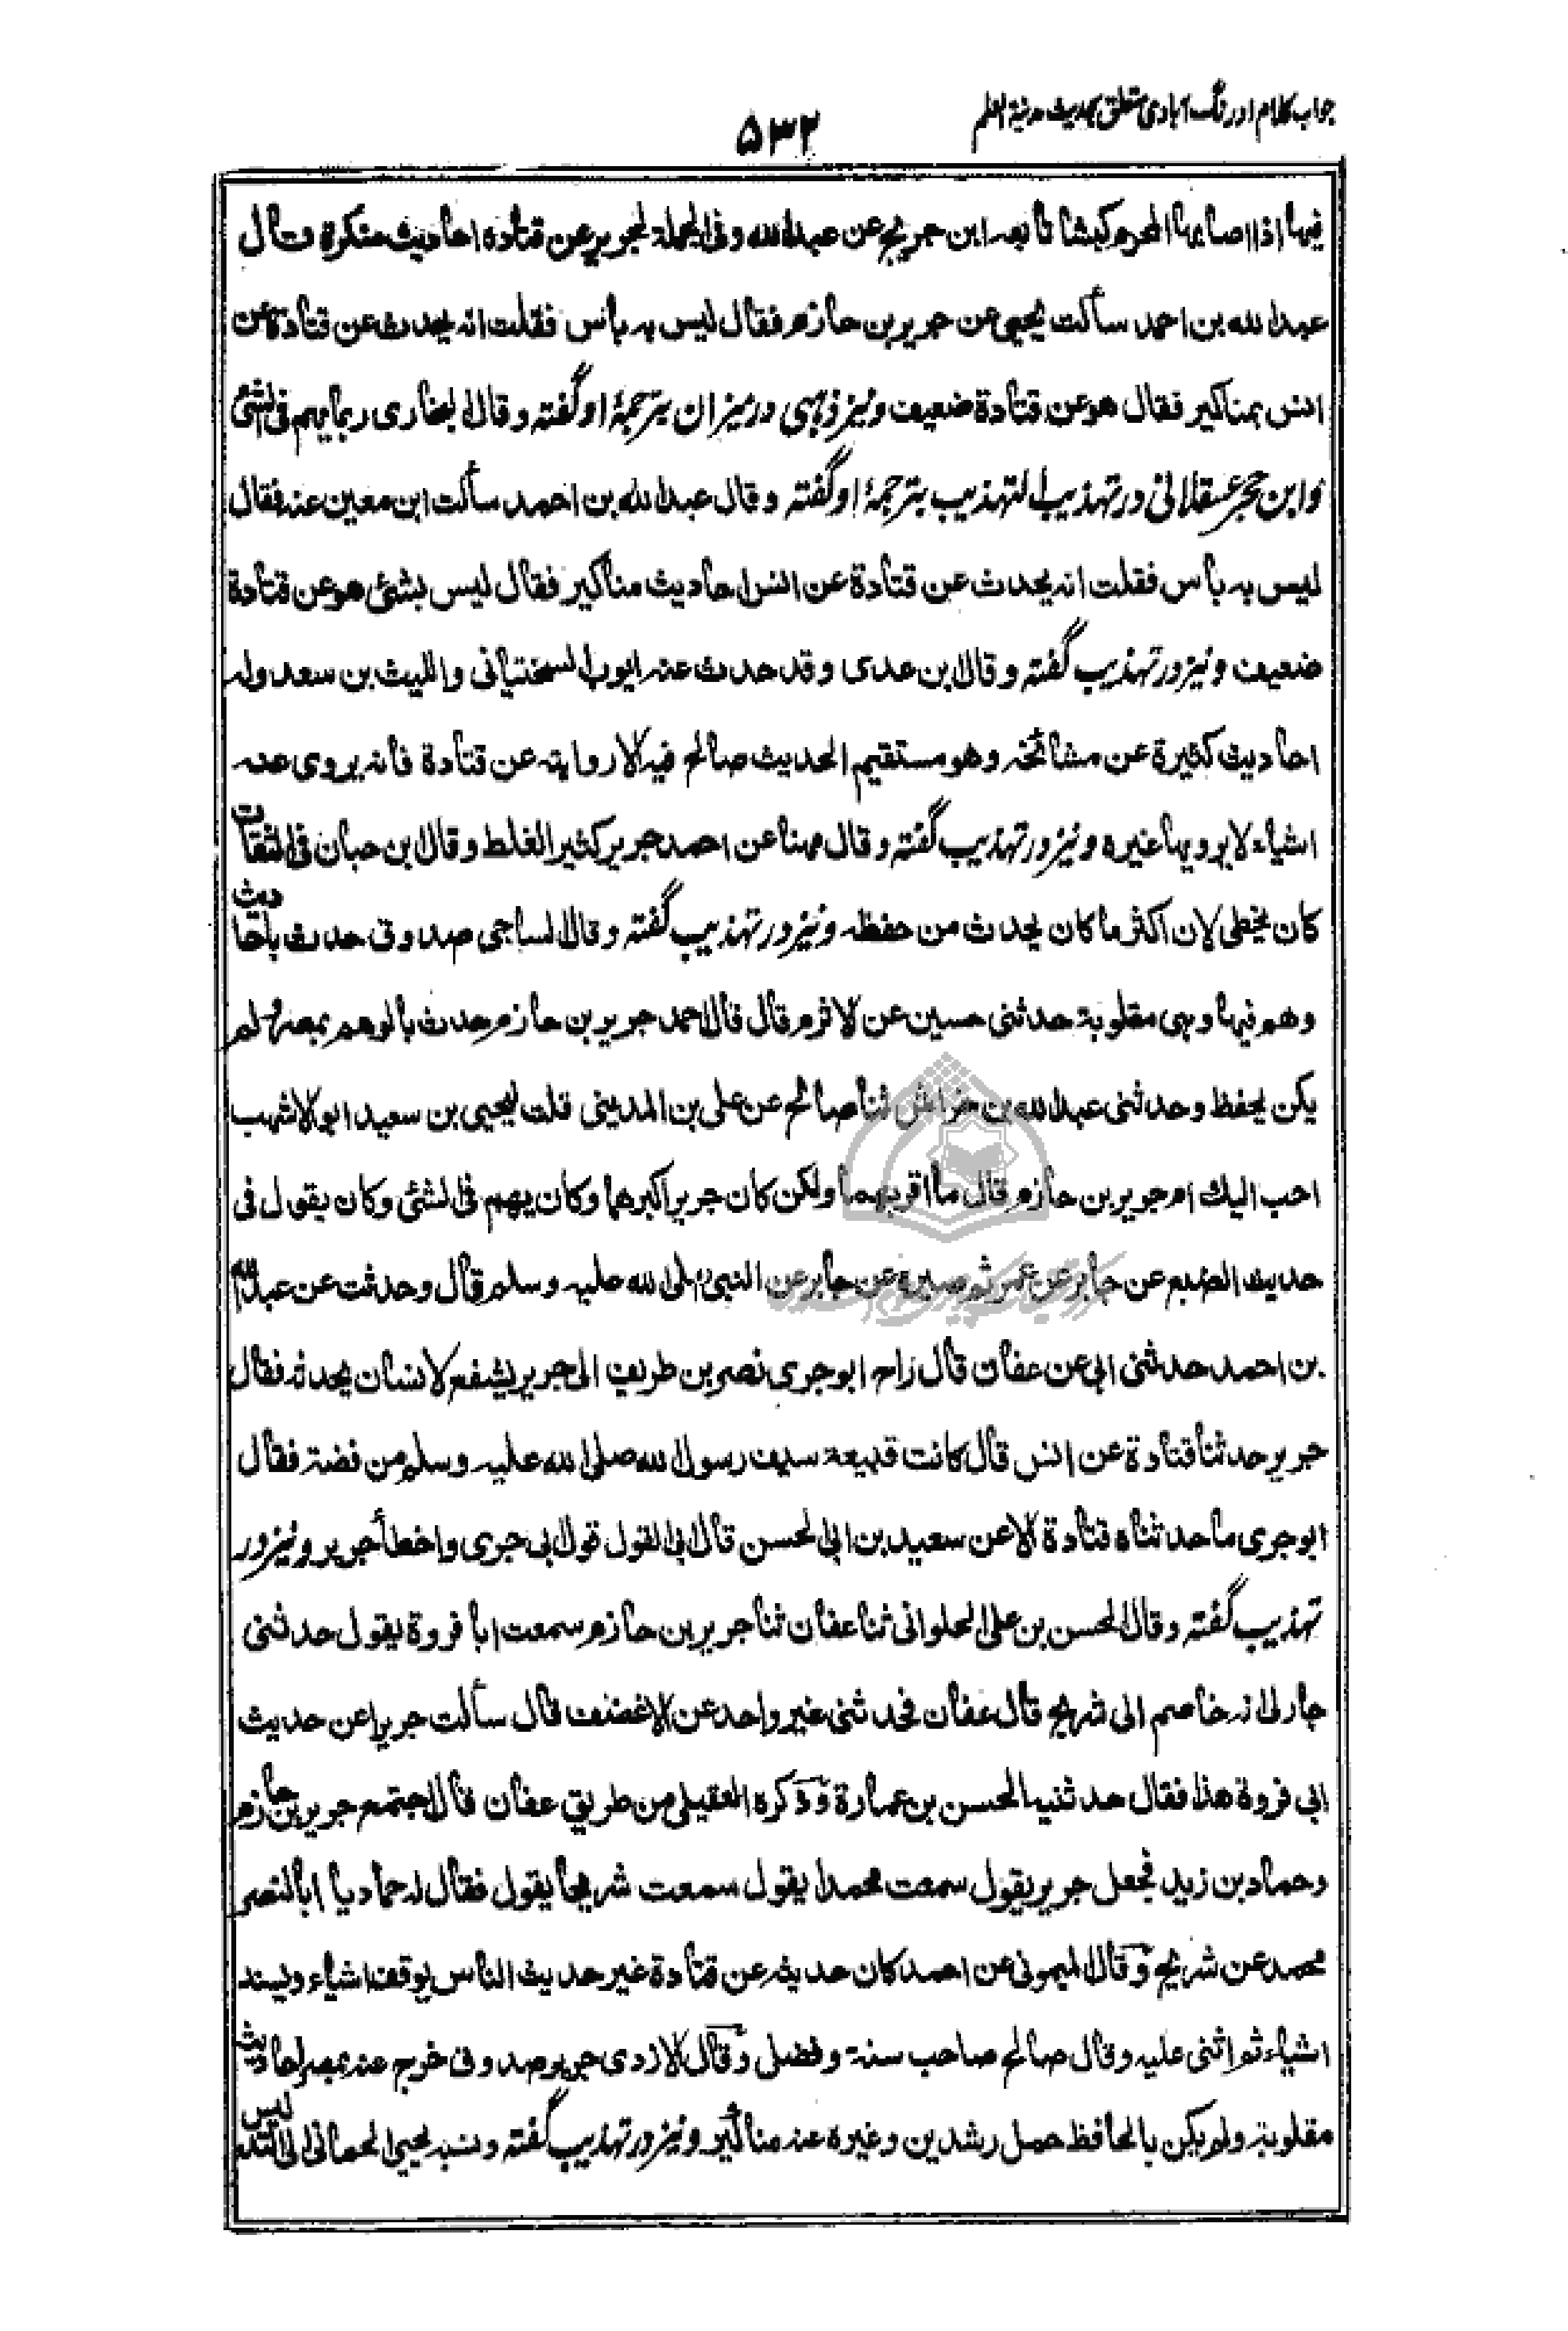 جواب کلام اورنگ آبادی متعلق بحدیث مدینة العلم
۵۳۲
فیها اذا اصابها المحرم کبشا تابعه ابن جریج عن عبد الله وفی الجملة لجریر عن قتاده احادیث منکرة وقال
عبد الله بن احمد سألت یحیی عن جریر بن حازم فقال لیس به باس فقلت انه یحدث عن قتادة عن
انس بمناکیر فقال هو عن قتادة ضعیف ونیز ذهبی در میزان بترجمۀ او گفته وقال البخاری ربما یهم فی الشئ
و ابن حجر عسقلانی در تهذیب التهذیب بترجمۀ او گفته وقال عبد الله بن احمد سألت ابن معین عنه فقال
لیس به باس فقلت انه یحدث عن قتادة عن انس احادیث مناکیر فقال لیس بشئ هو عن قتادة
ضعیف ونیز در تهذیب گفته وقال ابن عدی وقد حدث عنه ایوب السختیانی واللیث بن سعد وله
احادیث کثیرة عن مشائخه وهو مستقیم الحدیث صالح فیه الا روایته عن قتادة فانه یروی عنه
اشیاء لا یرویها غیره ونیز در تهذیب گفته وقال مهنا عن احمد جریر کثیر الغلط وقال ابن حبان فی الثقات
کان یخطی لان اکثر ما کان یحدث من حفظه ونیز در تهذیب گفته وقال الساجی صدوق حدث باحادیث
وهم فیها وهی مقلوبة حدثنی حسین عن الاثرم قال قال احمد جریر بن حازم حدث بالوهم بمصر ولم
یکن یحفظ وحدثنی عبد الله بن خراش ثنا صالح عن علی بن المدینی قلت لیحیی بن سعید ابو الاشهب
احب الیك ام جریر بن حازم قال ما اقربهما ولکن کان جریر اکبرهما وکان یهم فی الشئی وکان یقول فی
حدیث الضبع عن جابر عن عمر ثم صیره عن جابر عن النبی صلی الله علیه وسلم قال وحدثت عن عبد الله
بن احمد حدثنی ابی عن عفان قال راح ابو جری نصر بن طریف الی جریر یشفع لانسان یحدثه فقال
جریر حدثنا قتادة عن انس قال کانت قبیعة سیف رسول الله صلی الله علیه وسلم من فضة فقال
ابو جری ما حدثناه قتادة الا عن سعید بن ابی الحسن قال ابی القول قول ابی جری واخطأ جریر ونیز در
تهذیب گفته وقال الحسن بن علی الحلوانی ثنا عفان ثنا جریر بن حازم سمعت ابا فروة یقول حدثنی
جار لی انه خاصم الی شریح قال عفان فحدثنی غیر واحد عن الاغضف قال سألت جریرا عن حدیث
ابی فروة هذا فقال حدثنیه الحسن بن عمارة وذکره العقیلی من طریق عفان قال اجتمع جریر بن حازم
وحماد بن زید فجعل جریر یقول سمعت محمدا یقول سمعت شریحا یقول فقال له حماد یا ابا النصر
محمد عن شریح وقال المیمونی عن احمد کان حدیثه عن قتادة غیر حدیث الناس یوقف اشیاء ویسند
اشیاء ثم اثنی علیه وقال صالح صاحب سنة وفضل وقال الازدی جریر صدوق خرج عنه بمصر احادیث
مقلوبة ولم یکن بالحافظ حمل رشدین وغیره عنه مناکیر ونیز در تهذیب گفته ونسبه یحیی الحمانی الی التدلیس